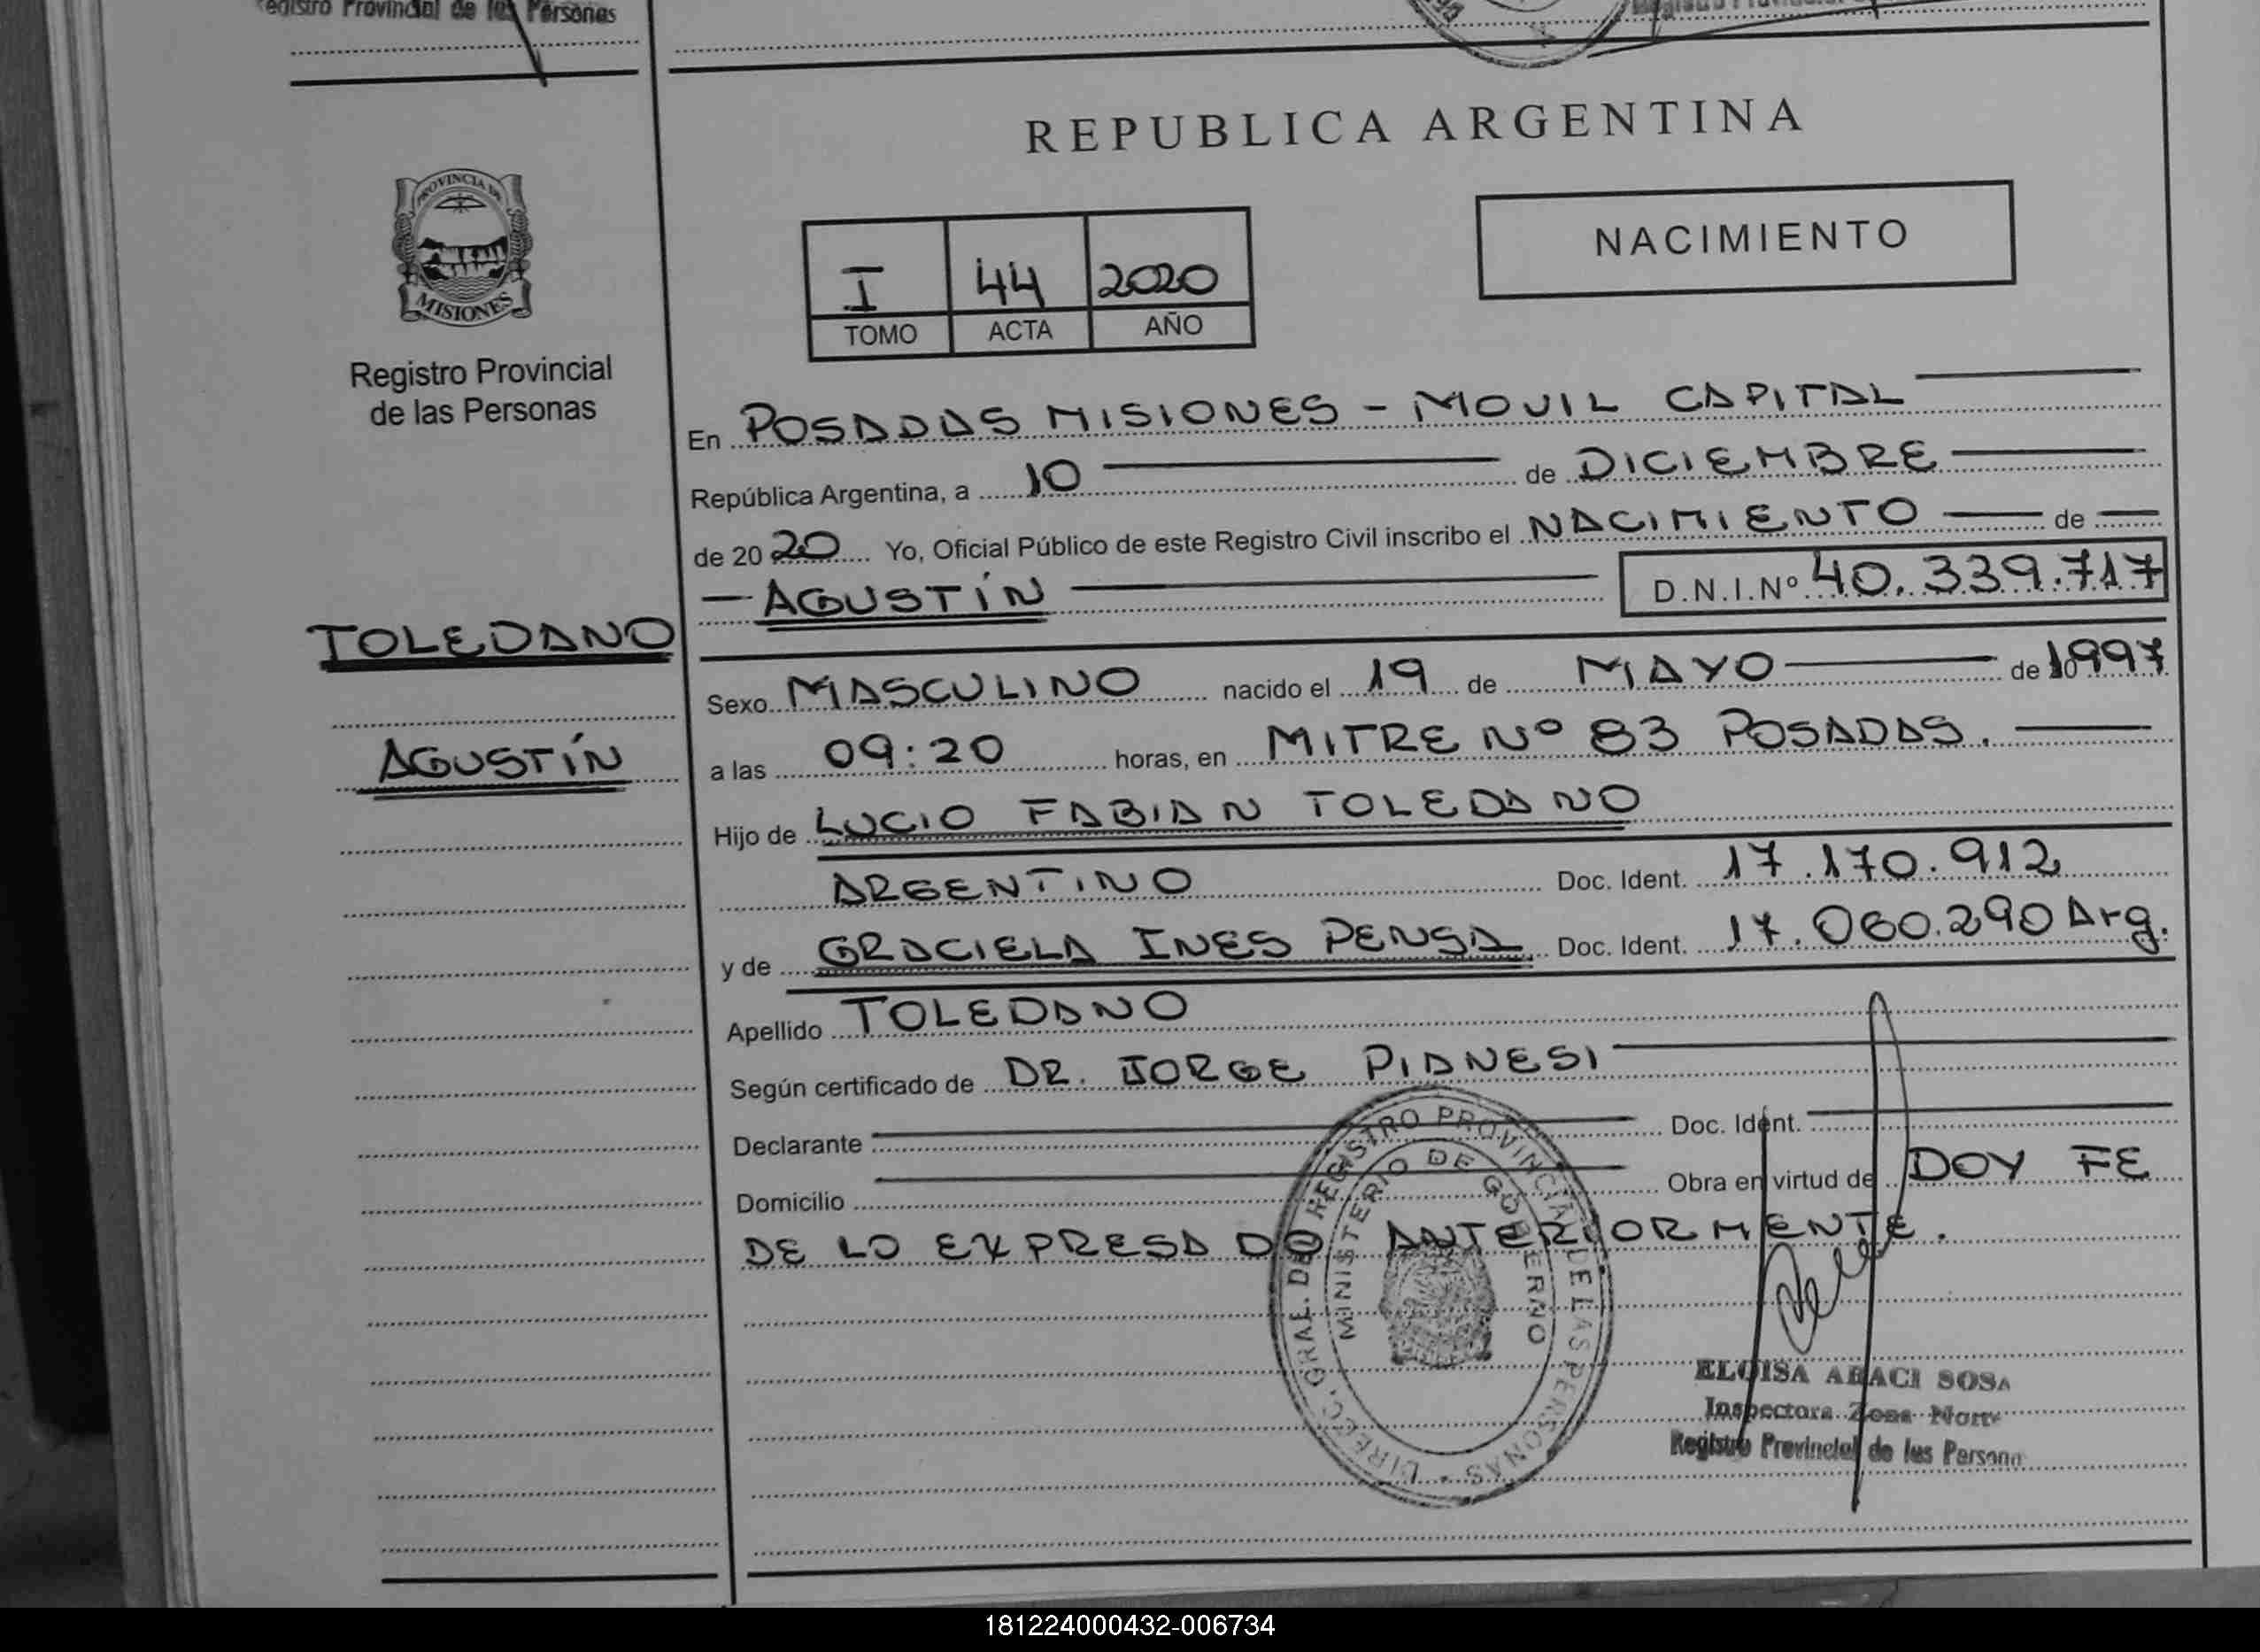 Registro Provincial de las Personas
REPUBLICA ARGENTINA
PROVINCIA DE
MISIONES
Registro Provincial
de las Personas
NACIMIENTO
I 44 2020
TOMO ACTA AÑO
En POSADAS MISIONES - MOVIL CAPITAL
República Argentina, a 10 de DICIEMBRE
de 20 20 Yo, Oficial Público de este Registro Civil inscribo el NACIMIENTO de
AGUSTÍN D.N.I.Nº 40.339.717
TOLEDANO
AGUSTÍN
Sexo MASCULINO nacido el 19 de MAYO de 1997
a las 09:20 horas, en MITRE Nº 83 POSADAS.
Hijo de LUCIO FABIAN TOLEDANO
ARGENTINO Doc. Ident. 17.170.912
y de GRACIELA INES PENSA Doc. Ident. 17.060.290 Arg.
Apellido TOLEDANO
Según certificado de DR. JORGE PIANESI
Declarante Doc. Ident.
Domicilio Obra en virtud de DOY FE
DE LO EXPRESADO ANTERIORMENTE.
DIRECC. GRAL. DEL REGISTRO PROVINCIAL DE LAS PERSONAS
MINISTERIO DE GOBIERNO
ELOISA ARACI SOSA
Inspectora Zona Norte
Registro Provincial de las Persona
181224000432-006734